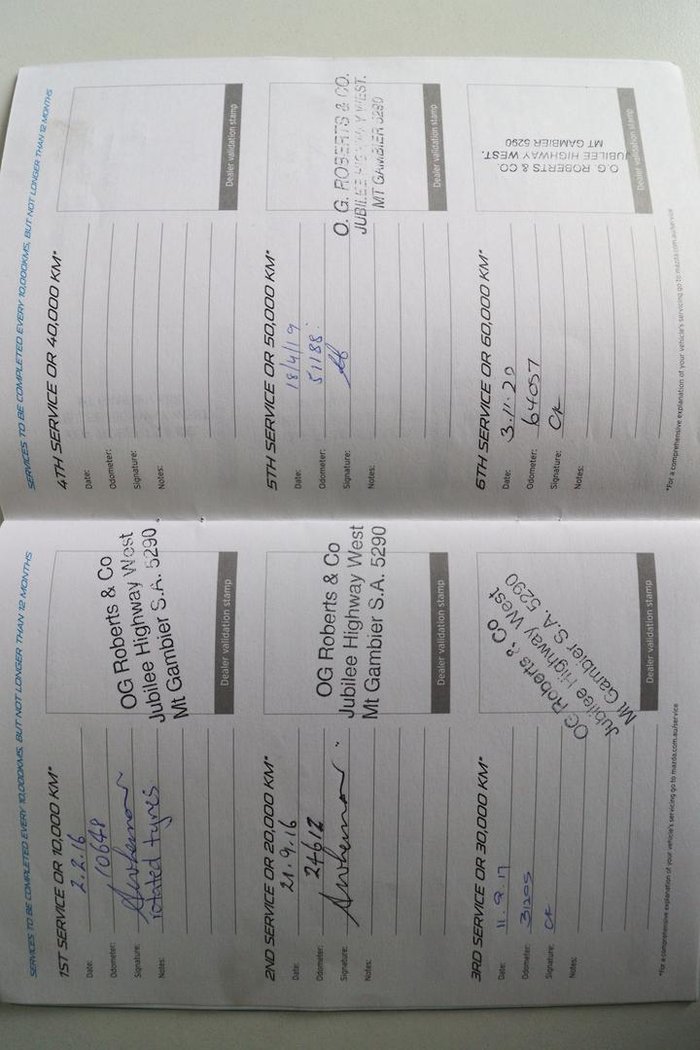 SERVICES TO BE COMPLETED EVERY 10,000KMS, BUT NOT LONGER THAN 12 MONTHS
1ST SERVICE OR 10,000 KM*
Date: 2.2.16
Odometer: 10648
Signature:
Notes: rotated tyres
OG Roberts & Co
Jubilee Highway West
Mt Gambier S.A. 5290
Dealer validation stamp
2ND SERVICE OR 20,000 KM*
Date: 21.9.16
Odometer: 24612
Signature:
Notes:
OG Roberts & Co
Jubilee Highway West
Mt Gambier S.A. 5290
Dealer validation stamp
3RD SERVICE OR 30,000 KM*
Date: 11.9.17
Odometer: 31205
Signature: CK
Notes:
OG Roberts & Co
Jubilee Highway West
Mt Gambier S.A. 5290
Dealer validation stamp
*For a comprehensive explanation of your vehicle's servicing go to mazda.com.au/service
SERVICES TO BE COMPLETED EVERY 10,000KMS, BUT NOT LONGER THAN 12 MONTHS
4TH SERVICE OR 40,000 KM*
Date:
Odometer:
Signature:
Notes:
Dealer validation stamp
5TH SERVICE OR 50,000 KM*
Date: 18/4/19
Odometer: 51188.
Signature:
Notes:
O. G. ROBERTS & CO.
JUBILEE HIGHWAY WEST.
MT GAMBIER 5290
Dealer validation stamp
6TH SERVICE OR 60,000 KM*
Date: 3.11.20
Odometer: 64057
Signature: CK
Notes:
O.G. ROBERTS & CO
JUBILEE HIGHWAY WEST.
MT GAMBIER 5290
Dealer validation stamp
*For a comprehensive explanation of your vehicle's servicing go to mazda.com.au/service